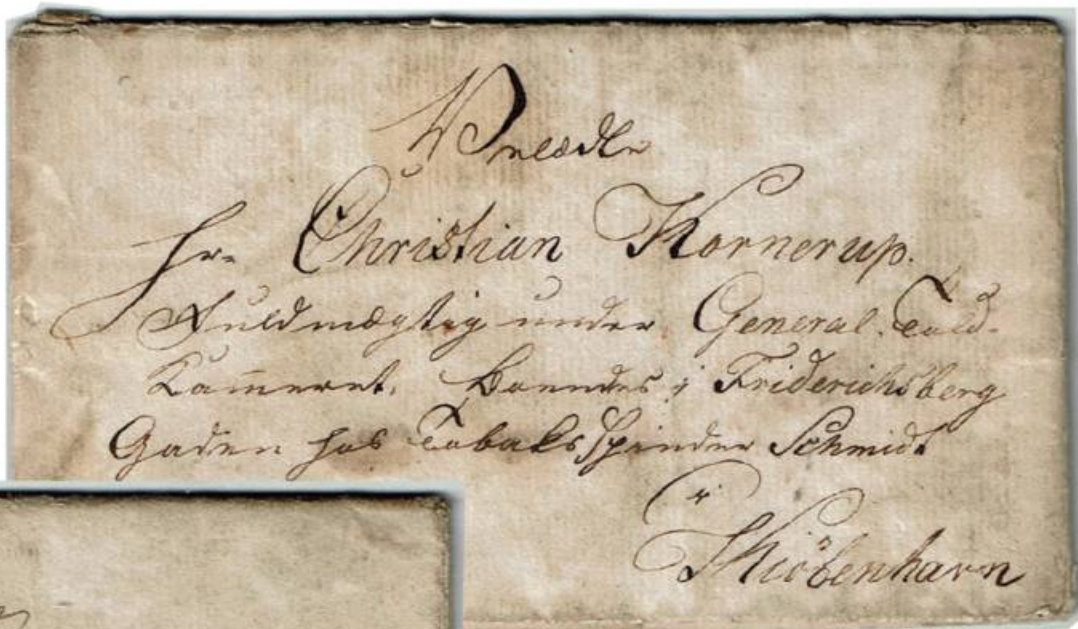 Velædle
Hr. Christian Kornerup.
Fuldmægtig under General-Told-
Kam̄eret. Boendes i Friderichsberg
Gaden hos Tobaks Spinder Schmidt
i
Kiöbenhavn